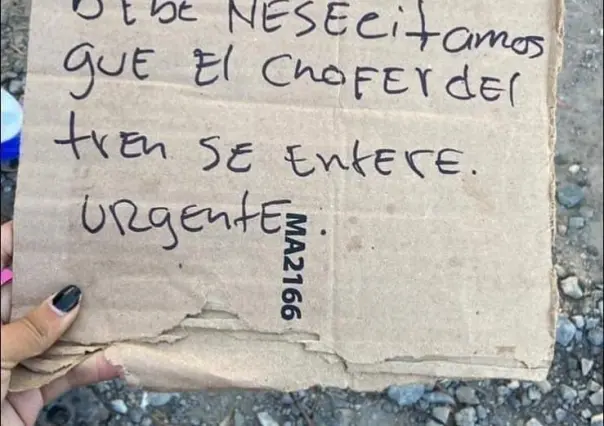 BEBE NESEcitamos
que El CHOFER del
tren SE EntERE.
URgentE.
MA2166